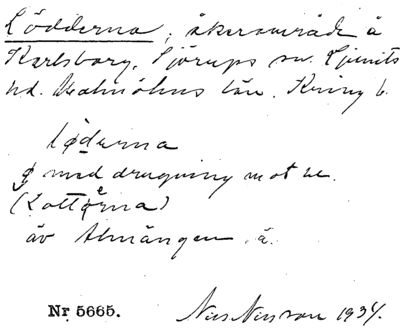 Lödderna, åkerområde å
Karlsborg, Sjörups sn. Ljunits
hd. Malmöhus län. Kring b.
løderna
ø med dragning mot œ.
(Lottørna)
av Almängen å.
Nr 5665. Nils Nilsson 1934.